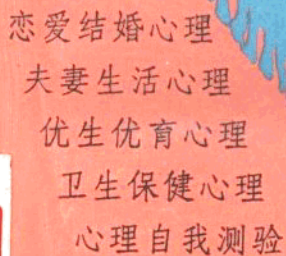 恋爱结婚心理
夫妻生活心理
优生优育心理
卫生保健心理
心理自我测验